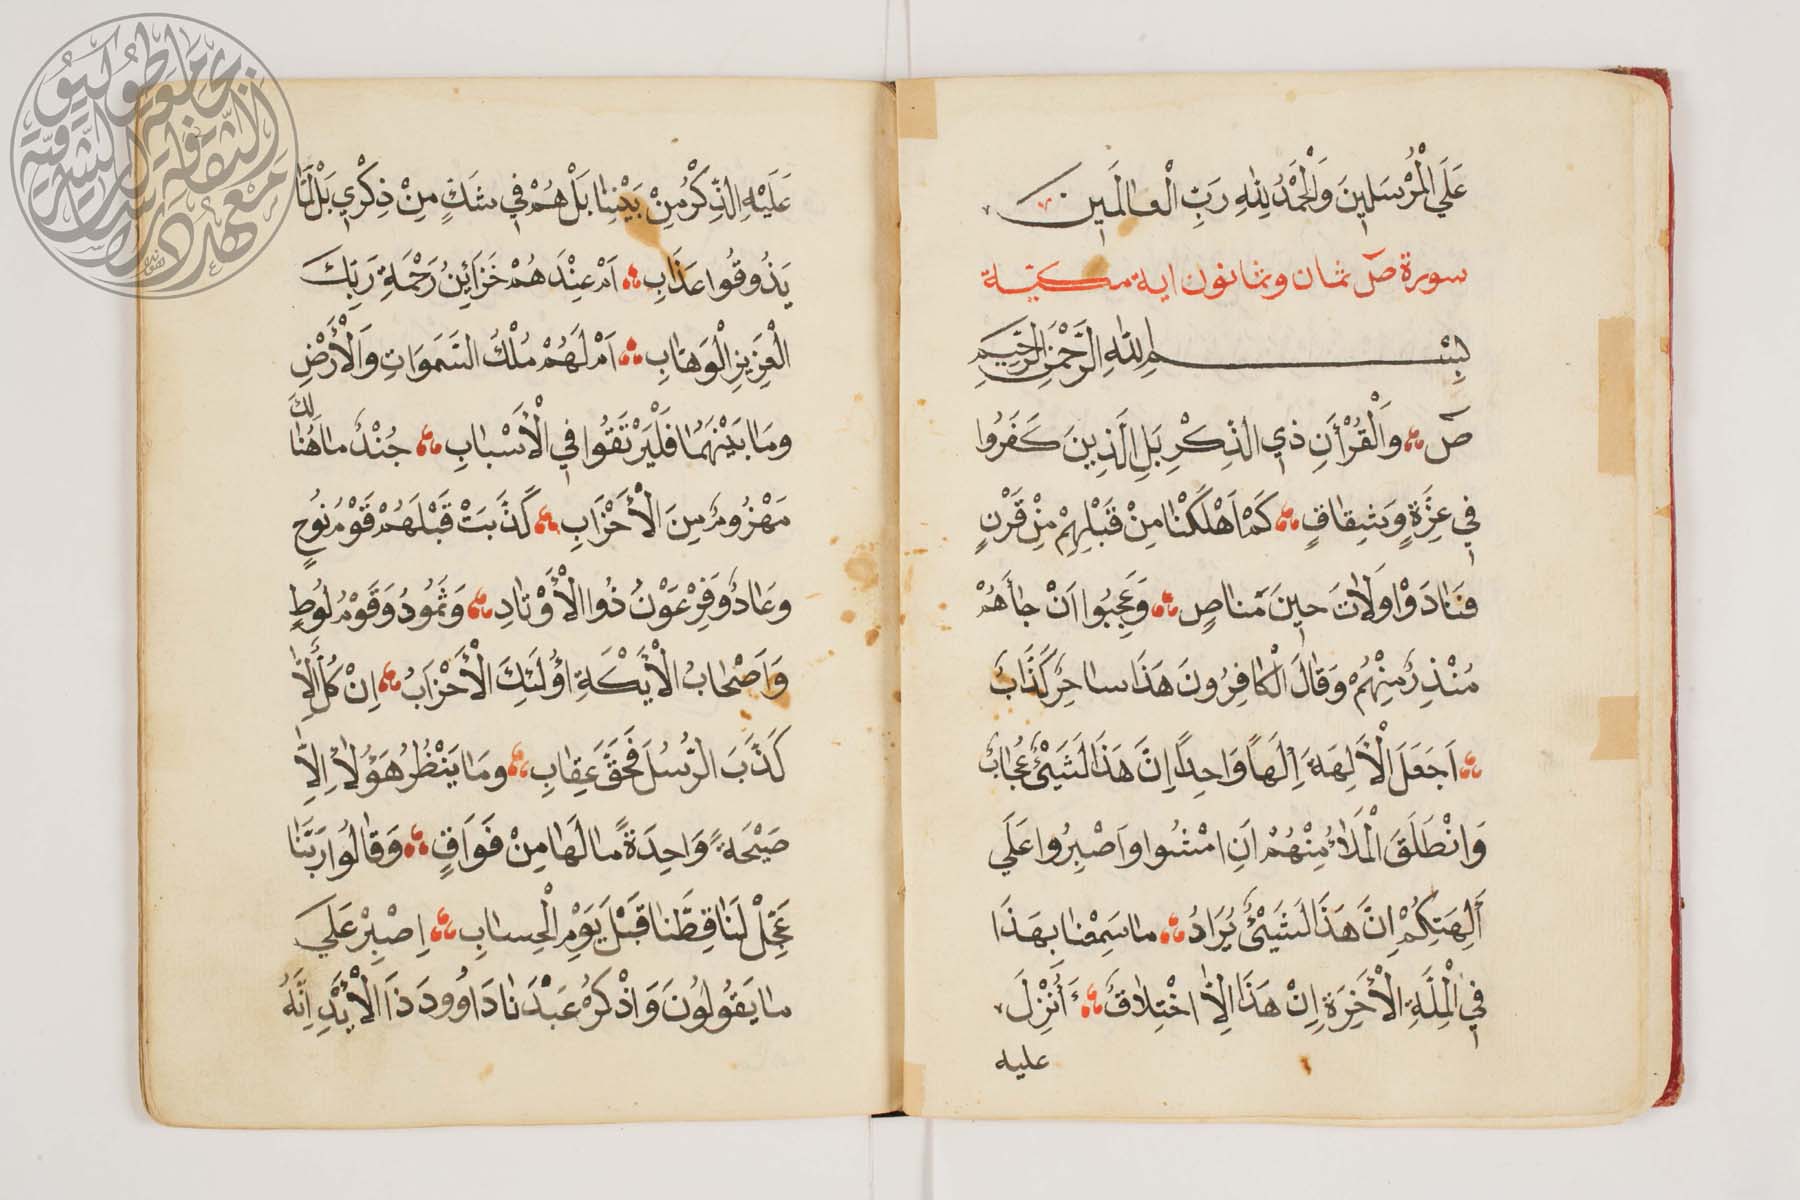 عَلَي الْمُرْسَلِينَ وَالْحَمْدُ لِلّٰهِ رَبِّ الْعَالَمِينَ
سورة صٓ ثمان وثمانون اية مكيّة
بِسْمِ اللّٰهِ الرَّحْمٰنِ الرَّحِيمِ
صٓ وَالْقُرْأَنِ ذِي الذِّكْرِ بَلِ الَّذِينَ كَفَرُوا
فِي عِزَّةٍ وَشِقَاقٍ كَمْ اَهْلَكْنَا مِنْ قَبْلِهِمْ مِنْ قَرْنٍ
فَنَادَوْا وَلَاتَ حِينَ مَنَاصٍ وَعَجِبُوا اَنْ جَاءَهُمْ
مُنْذِرٌ مِنْهُمْ وَقَالَ الْكَافِرُونَ هَذَا سَاحِرٌ كَذَّابٌ
اَجَعَلَ الْأَلِهَةَ اِلَهًا وَاحِدًا اِنَّ هَذَا لَشَيْئٌ عُجَابٌ
وَانْطَلَقَ الْمَلَأُ مِنْهُمْ اَنِ امْشُوا وَاصْبِرُوا عَلَي
أَلِهَتِكُمْ اِنَّ هَذَا لَشَيْئٌ يُرَادُ مَا سَمِعْنَا بِهَذَا
فِي الْمِلَّةِ الْأَخِرَةِ اِنْ هَذَا اِلَّا اخْتِلَاقٌ أَُنْزِلَ
عليه
عَلَيْهِ الذِّكْرُ مِنْ بَيْنِنَا بَلْ هُمْ فِي شَكٍّ مِنْ ذِكْرِي بَلْ لَمَّا
يَذُوقُوا عَذَابِ اَمْ عِنْدَهُمْ خَزَائِنُ رَحْمَةِ رَبِّكَ
الْعَزِيزِ الْوَهَّابِ اَمْ لَهُمْ مُلْكُ السَّمَوَاتِ وَالْأَرْضِ
وَمَا بَيْنَهُمَا فَلْيَرْتَقُوا فِي الْأَسْبَابِ جُنْدٌ مَا هُنَالِكَ
مَهْزُومٌ مِنَ الْأَحْزَابِ كَذَّبَتْ قَبْلَهُمْ قَوْمُ نُوحٍ
وَعَادٌ وَفِرْعَوْنُ ذُوا الْأَوْتَادِ وَثَمُودُ وَقَوْمُ لُوطٍ
وَاَصْحَابُ الْأَيْكَةِ اُولَئِكَ الْأَحْزَابُ اِنْ كُلٌّ اِلَّا
كَذَّبَ الرُّسُلَ فَحَقَّ عِقَابِ وَمَا يَنْظُرُ هَؤُلَاءِ اِلَّا
صَيْحَةً وَاحِدَةً مَا لَهَا مِنْ فَوَاقٍ وَقَالُوا رَبَّنَا
عَجِّلْ لَنَا قِطَّنَا قَبْلَ يَوْمِ الْحِسَابِ اِصْبِرْ عَلَي
مَا يَقُولُونَ وَاذْكُرْ عَبْدَنَا دَاوُودَ ذَا الْأَيْدِ اِنَّهُ